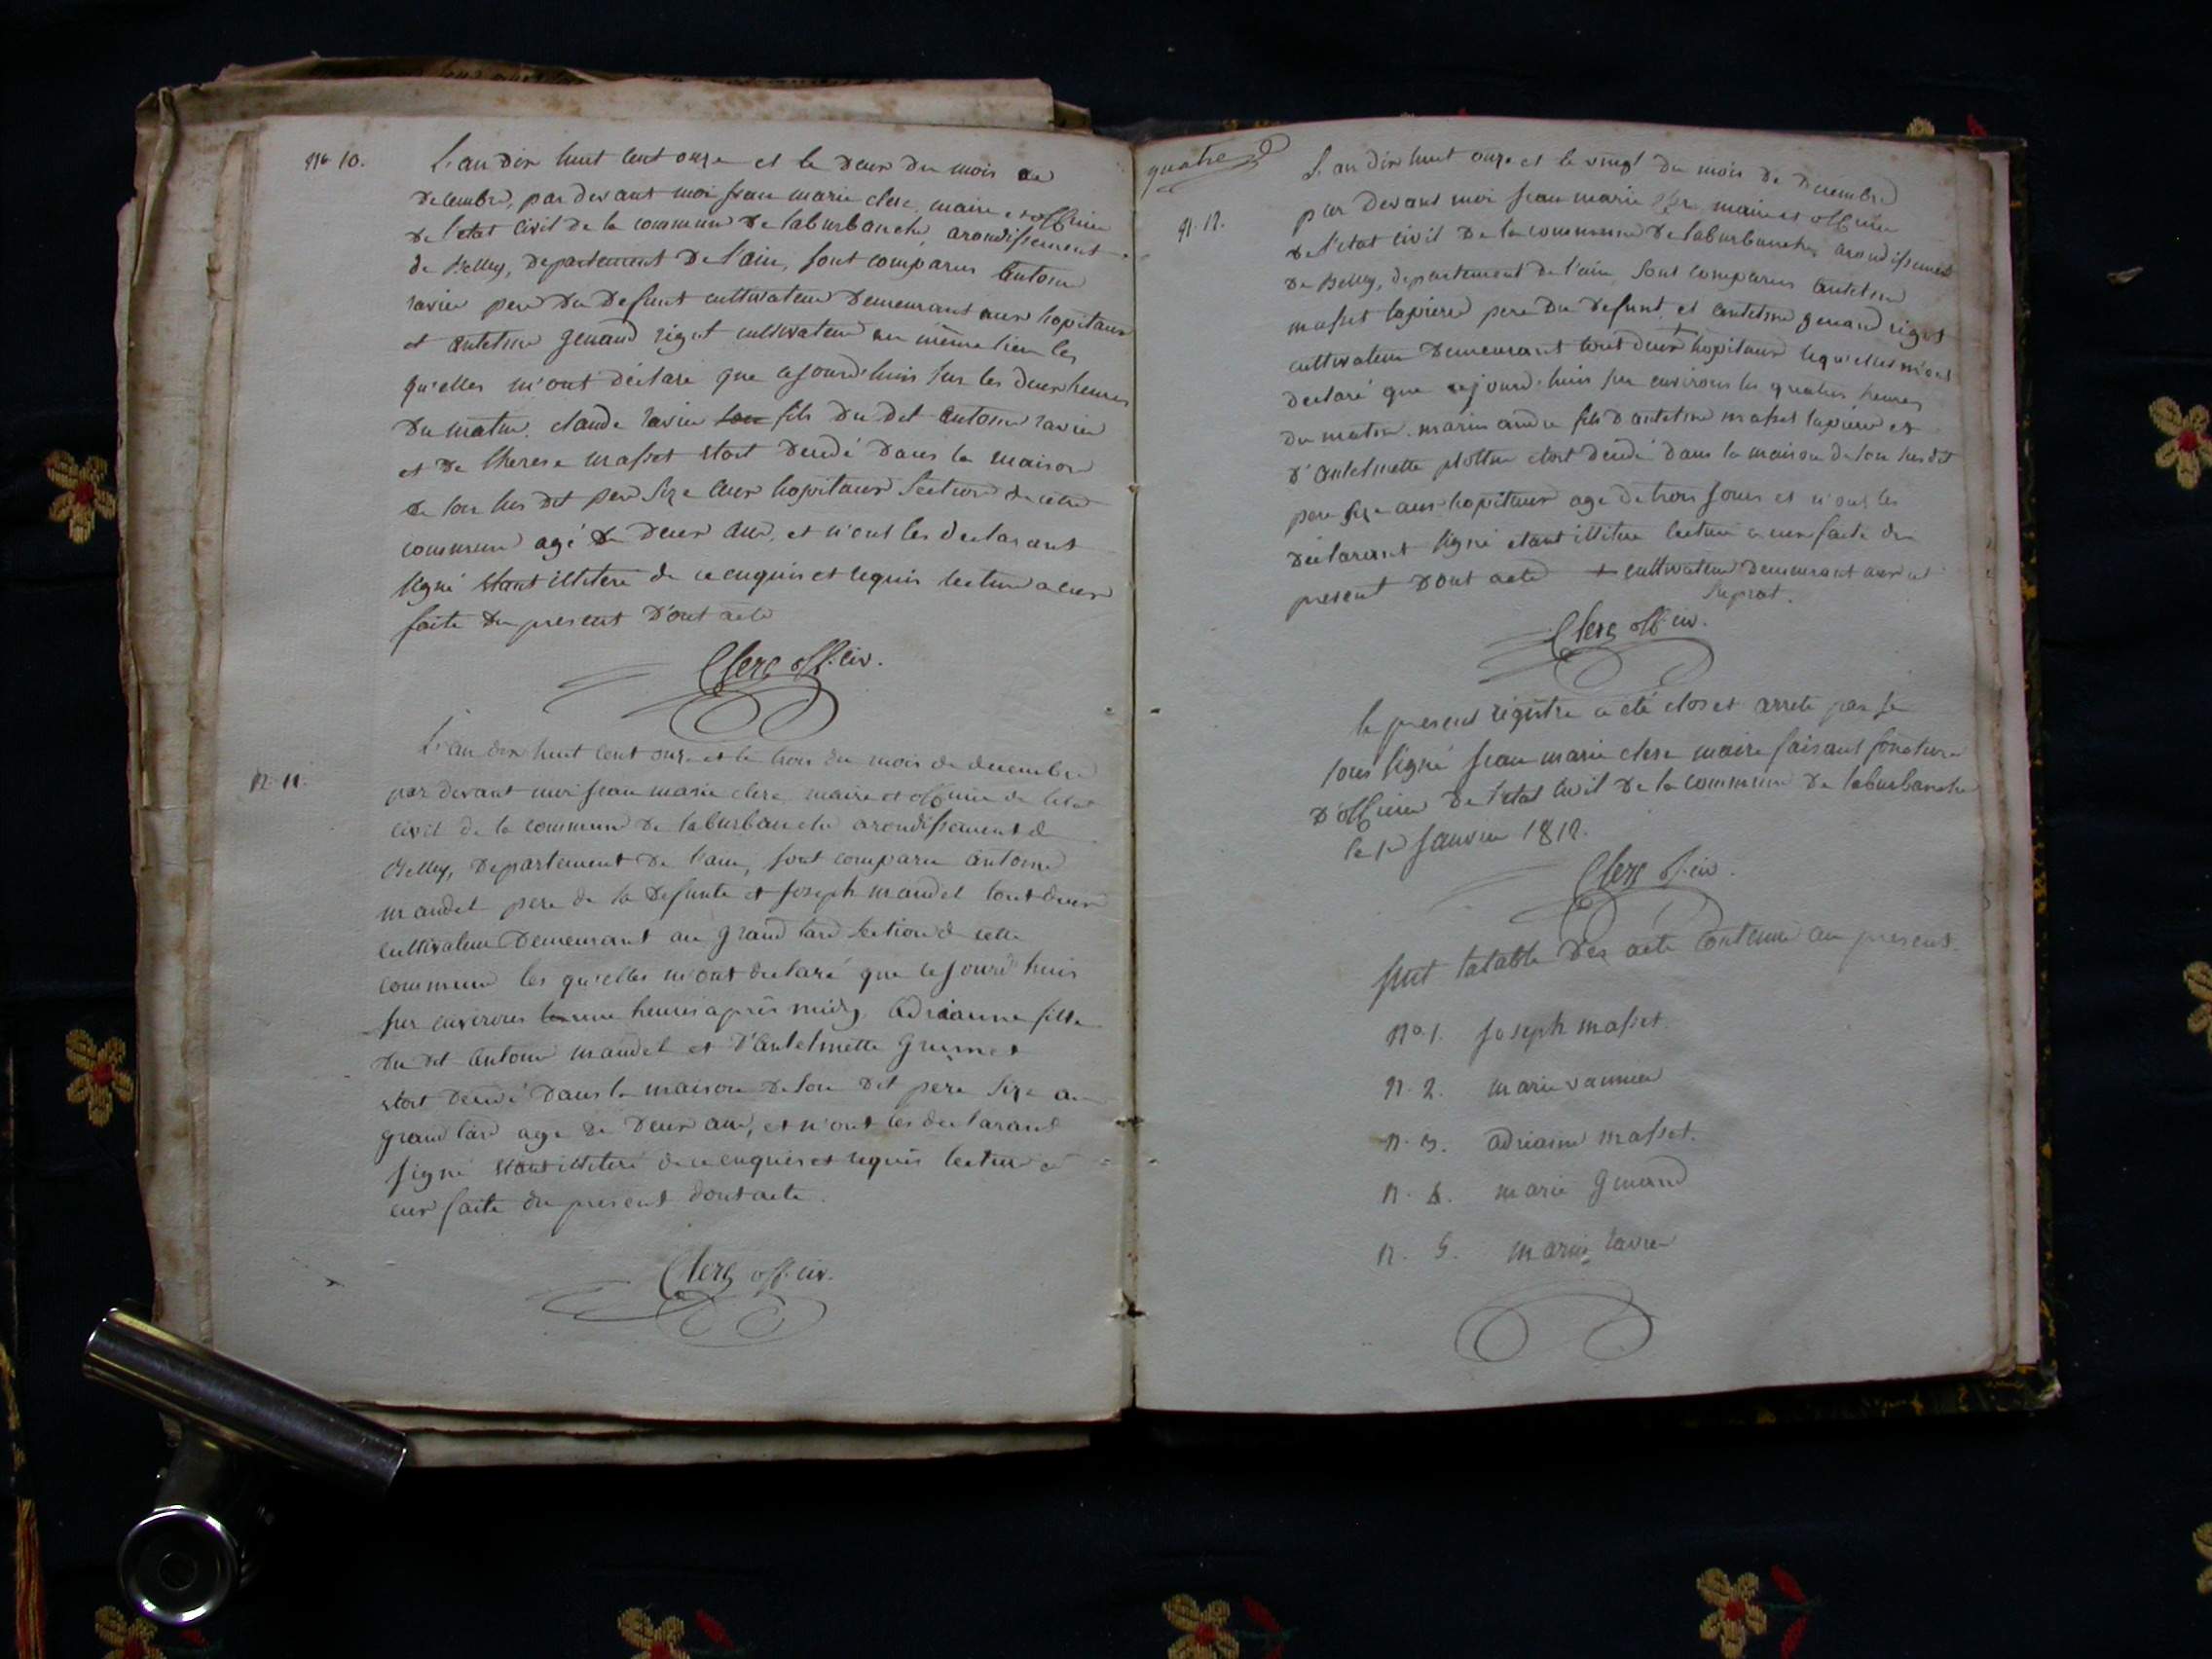 No 10.
L'an dix huit cent onze et le deux du mois de
decembre, par devant moi jean marie clerc, maire et officier
de l'etat civil de la commune de laburbanche, arondissement
de Belley, departement de l'ain, sont comparus antoine
ravier pere du defunt cultivateur demeurant aux hopitaux
et antelme genand rigot cultivateur au même lieu les
qu'elles m'ont déclaré que cejourd'huis sur les deux heures
du matin. claude ravier fils du dit antoine ravier
et de therese masset etoit décédé dans la maison
de son sus dit pere size aux hopitaux section de cette
commune agé de deux ans, et n'ont les declarant
signé etant illiteré de ce enquis et requis lecture a eux
faite du present d'ont acte
Clerc off. civ.
N. 11.
L'an dix huit cent onze et le trois du mois de decembre
par devant moi jean marie clerc maire et officier de l'etat
civil de la commune de laburbanche arondissement de
Belley, departement de l'ain, sont comparu antoine
mandel pere de la defunte et joseph mandel tout deux
cultivateur demeurant au grand lard section de cette
commune les qu'elles m'ont declaré que cejourd'huis
sur environs une heures après midy Adrianne fille
du dit antoine mandel et d'antelmette grumet
etoit décédé dans la maison de son dit père size au
grand lard age de deux ans, et n'ont les declarant
signé etant illiteré de ce enquis et requis lecture a
eux faite du present dont acte.
Clerc off. civ.
quatre
N. 12.
L'an dix huit onze et le vingt du mois de decembre
par devant moi jean marie clerc maire et officier
de l'etat civil de la commune de laburbanche arondissement
de Belley, departement de l'ain, sont comparus antelme
masset lapiere pere du defunt, et antelme genand rigot
cultivateur demeurant tout deux + hopitaux lequ'elles m'ont
declaré que cejourd'huis sur environs les quatres heures
du matin. marin andre fils d'antelme masset lapiere et
d'antelmette plottin etoit décédé dans la maison de son susdit
pere size aux hopitaux age de trois jours et n'ont les
déclarant signé etant illitere lecture a eux faite du
present dont acte + cultivateur demeurant aux
Clerc off. civ.
le present registre a été clos et arreté par je
sous signé jean marie clerc maire faisant fonction
d'officier de l'etat civil de la commune de laburbanche
le 1er janvier 1812.
Clerc of. civ.
suit la table des acte contenu au present.
No. 1. joseph masset.
N. 2. marie vannier
N. 3. adrianne masset.
N. 4. marie genand
N. 5. marie ravier